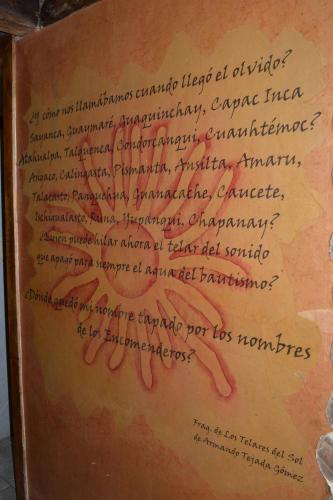 ¿Y cómo nos llamábamos cuando llegó el olvido?
Sayanca, Guaymaré, Guaquinchay, Capac Inca
Atahualpa, Talquenca, Condorcanqui, Cuauhtémoc?
AnGaco, Calingasta, Pismanta, Ansilta, Amaru,
Talacasto, Panquehua, Guanacache, Caucete,
Ischigualasto, Runa, Yupanqui, Chapanay?
¿Quién puede hilar ahora el telar del sonido
que apagó para siempre el agua del bautismo?
¿Dónde quedó mi nombre tapado por los nombres
de los Encomenderos?
Frag. de Los Telares del Sol
de Armando Tejada Gómez